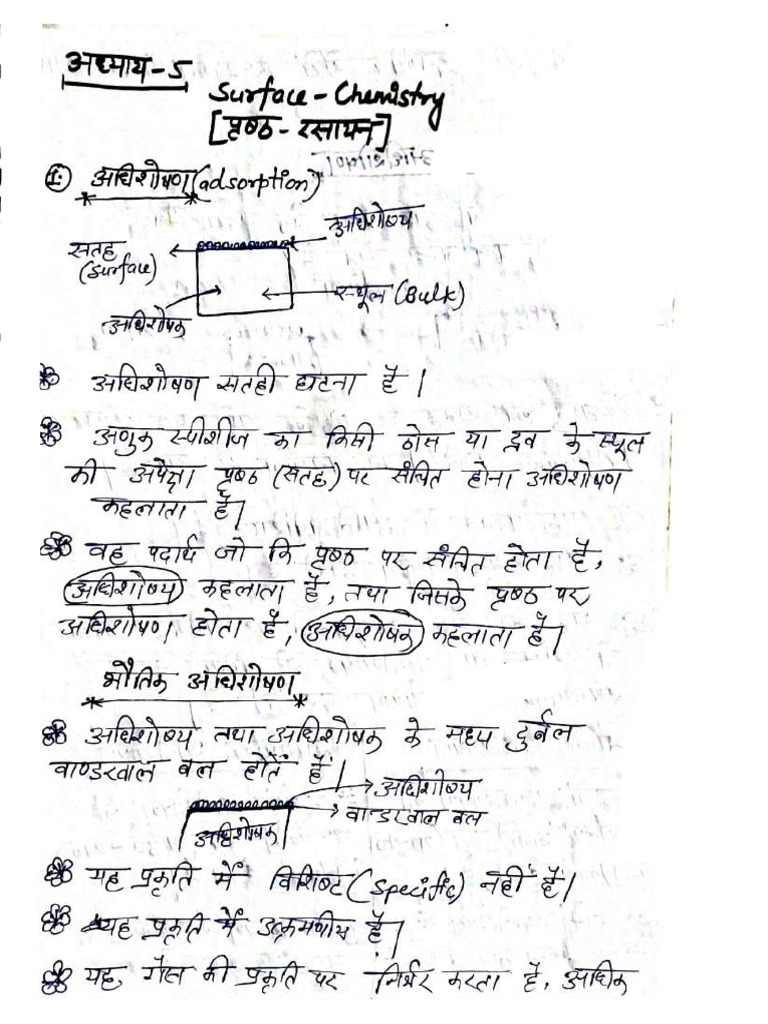 अध्याय-5
Surface-Chemistry
[पृष्ठ-रसायन]
①. अधिशोषण (adsorption)
अधिशोष्य
सतह
(surface)
स्थूल (Bulk)
अधिशोषक
अधिशोषण सतही घटना है।
अणुक स्पीशीज का किसी ठोस या द्रव के स्थूल
की अपेक्षा पृष्ठ (सतह) पर संचित होना अधिशोषण
कहलाता है।
वह पदार्थ जो कि पृष्ठ पर संचित होता है,
अधिशोष्य कहलाता है, तथा जिसके पृष्ठ पर
अधिशोषण होता है, अधिशोषक कहलाता है।
भौतिक अधिशोषण
अधिशोष्य तथा अधिशोषक के मध्य दुर्बल
वाण्डरवाल बल होतें हैं।
अधिशोष्य
वाण्डरवाल बल
अधिशोषक
यह प्रकृति में विशिष्ट (specific) नहीं हैं।
यह प्रकृति में उत्क्रमणीय है।
यह, गैस की प्रकृति पर निर्भर करता है, अधिक